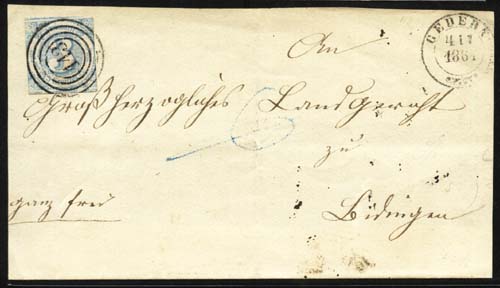 GEDERN
186
An
Großherzogliches Landgericht
zu
Büdingen
ganz frei